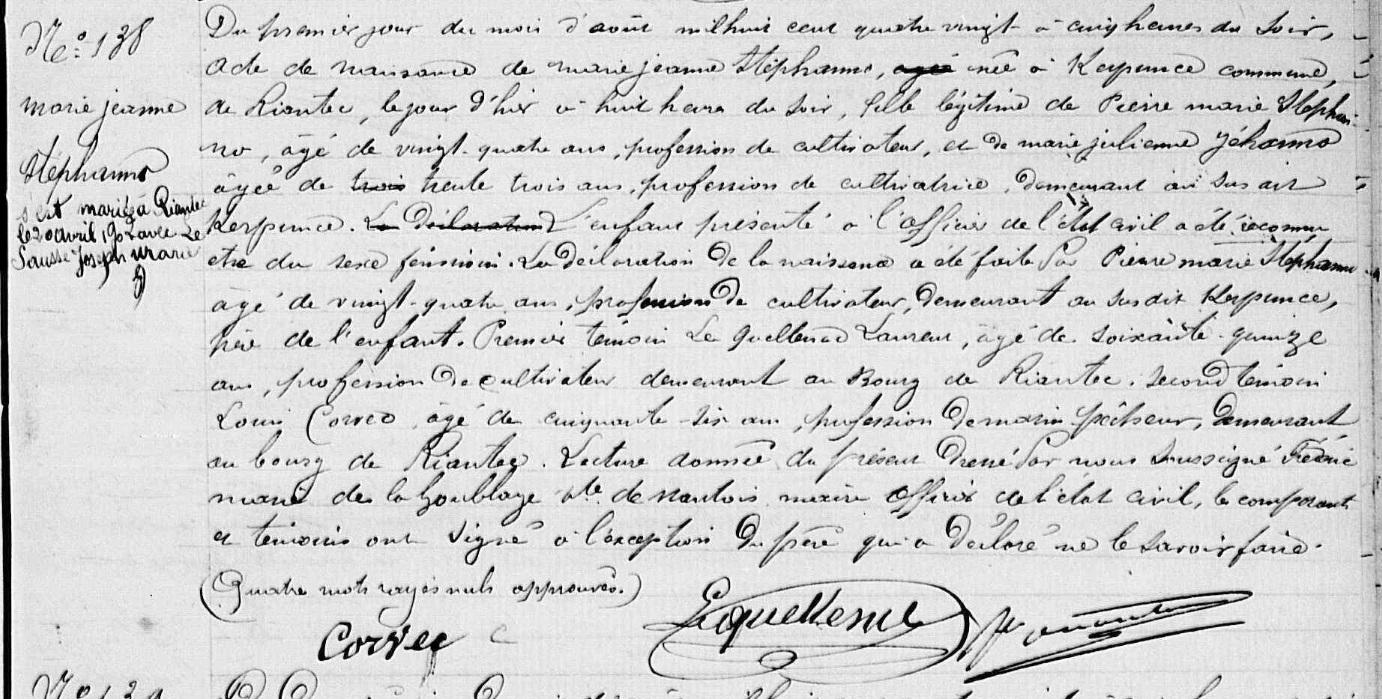 N:° 138
marie jeanne
Stéphanno
s'est mariée à Riantec
le 20 avril 1902 avec Le
Sausse Joseph Marie
Du premier jour du mois d'août mil huit cent quatre vingt à cinq heures du soir,
acte de naissance de marie jeanne Stéphanno, agée née à Kerpunce commune
de Riantec, le jour d'hier à huit heures du soir, fille légitime de Pierre marie Stéphan-
no, âgé de vingt-quatre ans, profession de cultivateur, et de marie julienne Jéhanno
âgée de trois trente trois ans, profession de cultivatrice, demeurant au susdit
Kerpunce. La déclaration L'enfant présenté à l'officier de l'état civil a été reconnu
etre du sexe féminin. La déclaration de la naissance a été faite par Pierre marie Stéphanno
âgé de vingt-quatre ans, profession de cultivateur, demeurant au susdit Kerpunce,
père de l'enfant. Premier témoin Le Quellenec Laurent, âgé de soixante-quinze
ans, profession de cultivateur demeurant au Bourg de Riantec. second témoin
Louis Corvec, âgé de cinquante-six ans, profession de marin pêcheur, demeurant
au bourg de Riantec. Lecture donnée du présent dressé par nous soussigné Frédéric
marie de la Houblaye de Nantois, maire officier de l'état civil, le comparant
et témoins ont signé à l'exception du père qui a déclaré ne le savoir faire.
(Quatre mots rayés nuls approuvés.)
Corvec Lequellenec